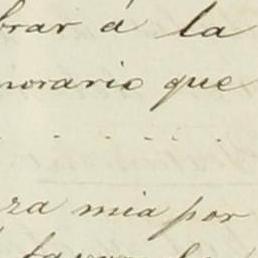 brar á la
norario que
za mia por